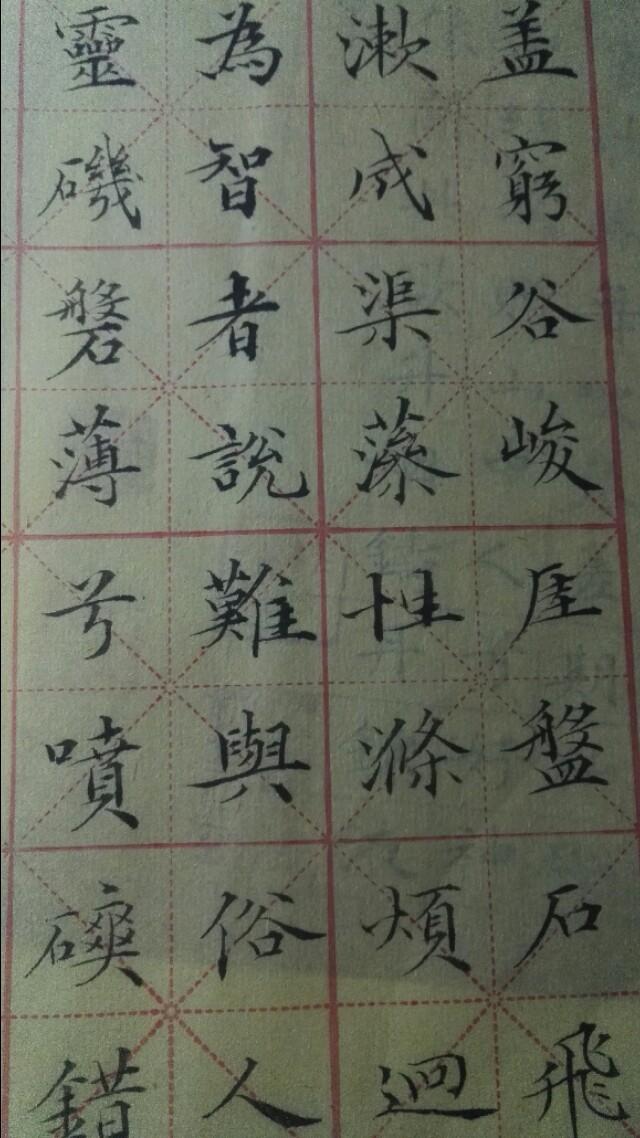 盖窮谷峻厓盤石飛
漱成渠藻性滌煩迴
為智者說難與俗人
靈磯磐薄兮噴磢錯